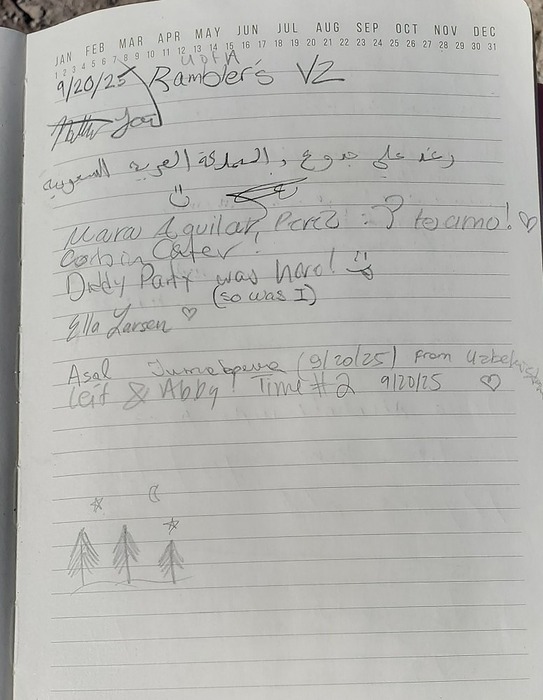 JAN FEB MAR APR MAY JUN JUL AUG SEP OCT NOV DEC
1 2 3 4 5 6 7 8 9 10 11 12 13 14 15 16 17 18 19 20 21 22 23 24 25 26 27 28 29 30 31
9/20/25 Rambler's V2
رعد علي جدوع, المملكة العربية السعودية
Mara Aguilar Perez : 3 te amo! ♡
Corbin Carter!
Diddy Party was here!
(so was I)
Ella Larsen ♡
Asal (9/20/25) from Uzbekistan
Leif & Abby! Time #2 9/20/25 ♡